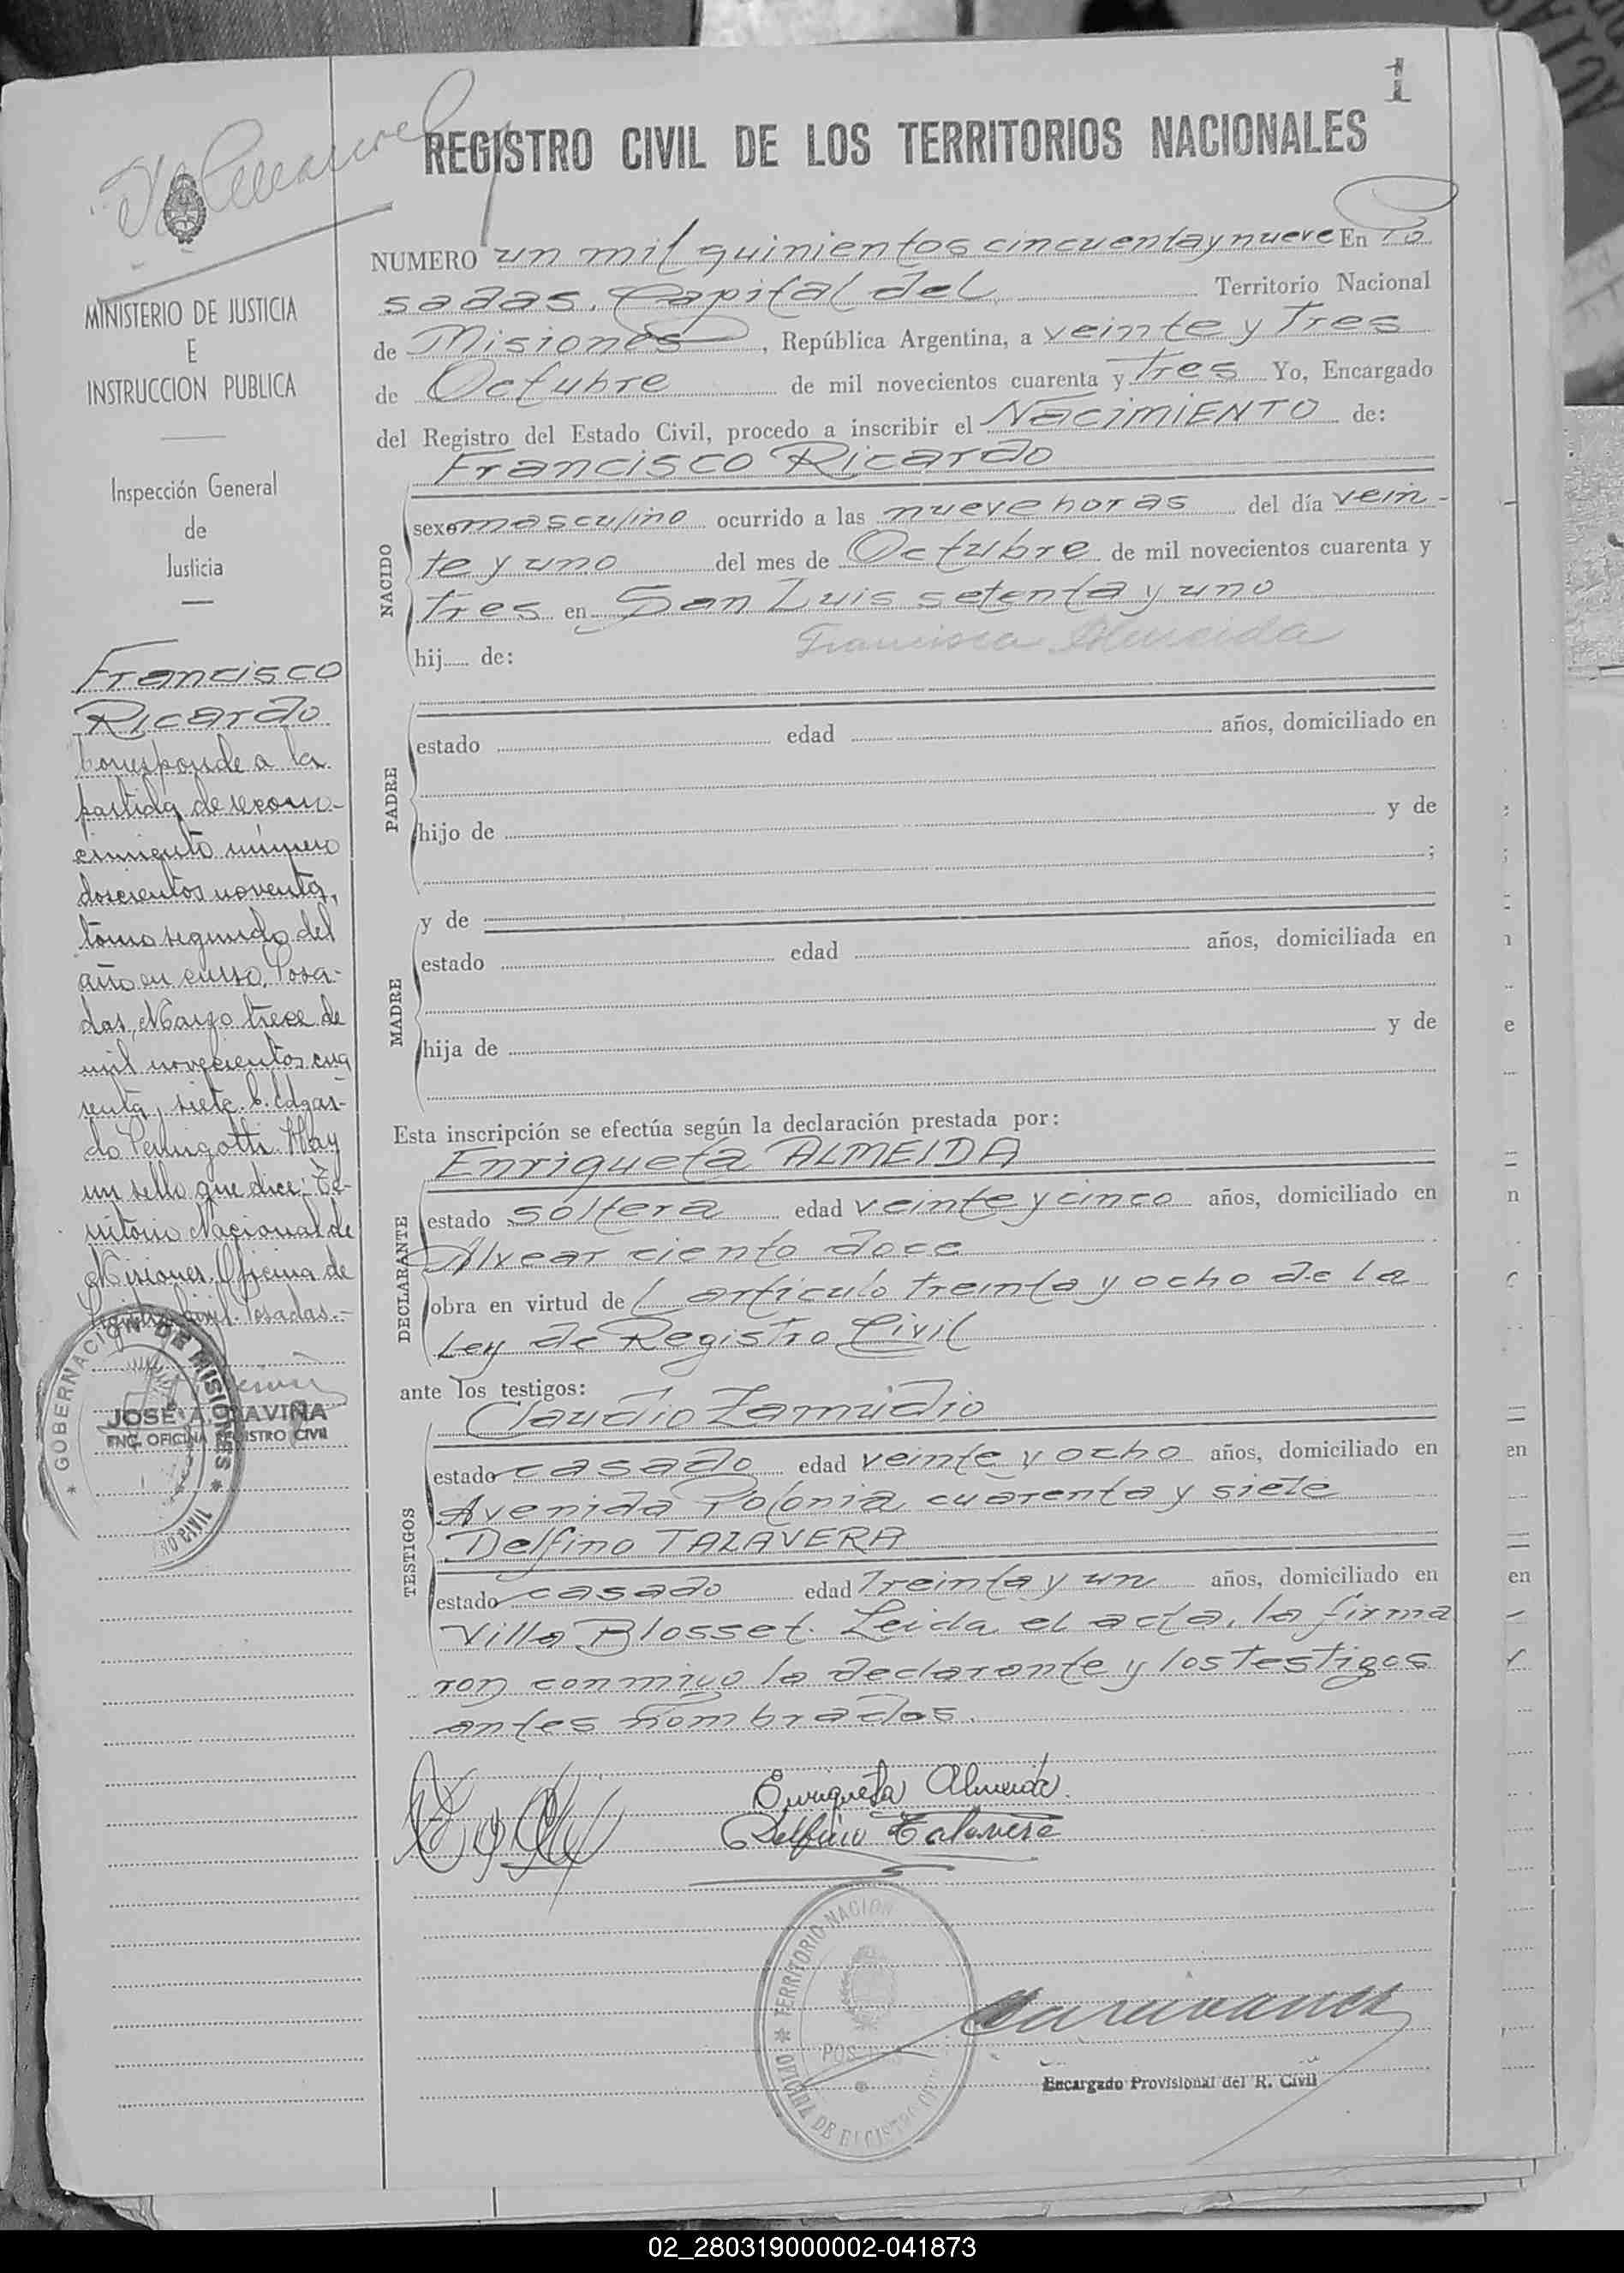 1
REGISTRO CIVIL DE LOS TERRITORIOS NACIONALES
NUMERO un mil quinientos cincuenta y nueve En Po
sadas, Capital del Territorio Nacional
de Misiones, República Argentina, a veinte y Tres
de Octubre de mil novecientos cuarenta y Tres Yo, Encargado
del Registro del Estado Civil, procedo a inscribir el NACIMIENTO de:
Francisco Ricardo
NACIDO
sexo masculino ocurrido a las nueve horas del día vein-
te y uno del mes de Octubre de mil novecientos cuarenta y
Tres en San Luis setenta y uno
Francisca Almeida
hij de:
PADRE
estado edad años, domiciliado en
hijo de y de
;
MADRE
y de
estado edad años, domiciliada en
hija de y de
Esta inscripción se efectúa según la declaración prestada por:
Enriqueta ALMEIDA
DECLARANTE
estado soltera edad veinte y cinco años, domiciliado en
Alvear ciento doce
obra en virtud del artículo treinta y ocho de la
Ley de Registro Civil
ante los testigos:
Claudio Zamudio
TESTIGOS
estado casado edad veinte y ocho años, domiciliado en
Avenida Polonia cuarenta y siete
Delfino TALAVERA
estado casado edad Treinta y un años, domiciliado en
Villa Blosset. Leida el acta, la firma
ron conmigo la declarante y los Testigos
antes nombrados.
Enriqueta Almeida
Delfino Talavera
TERRITORIO NACION
POS
OFICINA DE REGISTRO CIVIL
Encargado Provisional del R. Civil
MINISTERIO DE JUSTICIA
E
INSTRUCCION PUBLICA
Inspección General
de
Justicia
Francisco
Ricardo
Corresponde a la
partida de recono-
cimiento número
doscientos noventa,
tomo segundo del
año en curso, Posa-
das, Marzo trece de
mil novecientos cua
renta y siete. E. Edgar-
do Pernigotti. Hay
un sello que dice: Te-
rritorio Nacional de
Misiones. Oficina de
Registro Civil. Posadas.-
GOBERNACION DE MISIONES
JOSE A. RAVIÑA
ENC. OFICINA REGISTRO CIVIL
02_280319000002-041873